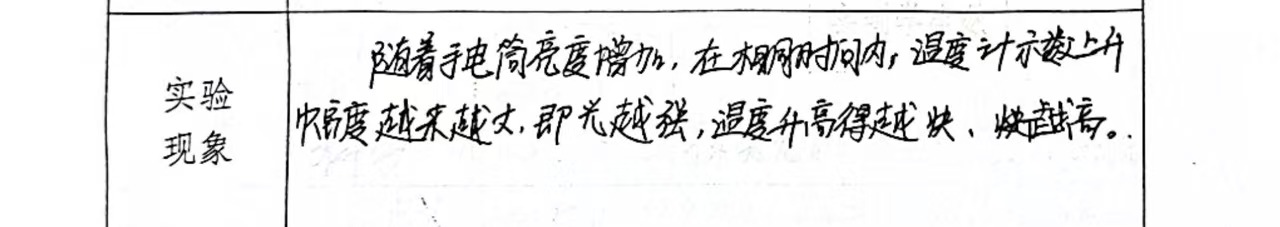 实验
现象
随着手电筒亮度增加，在相同时间内，温度计示数上升
幅度越来越大，即光越强，温度升高得越快、越高。